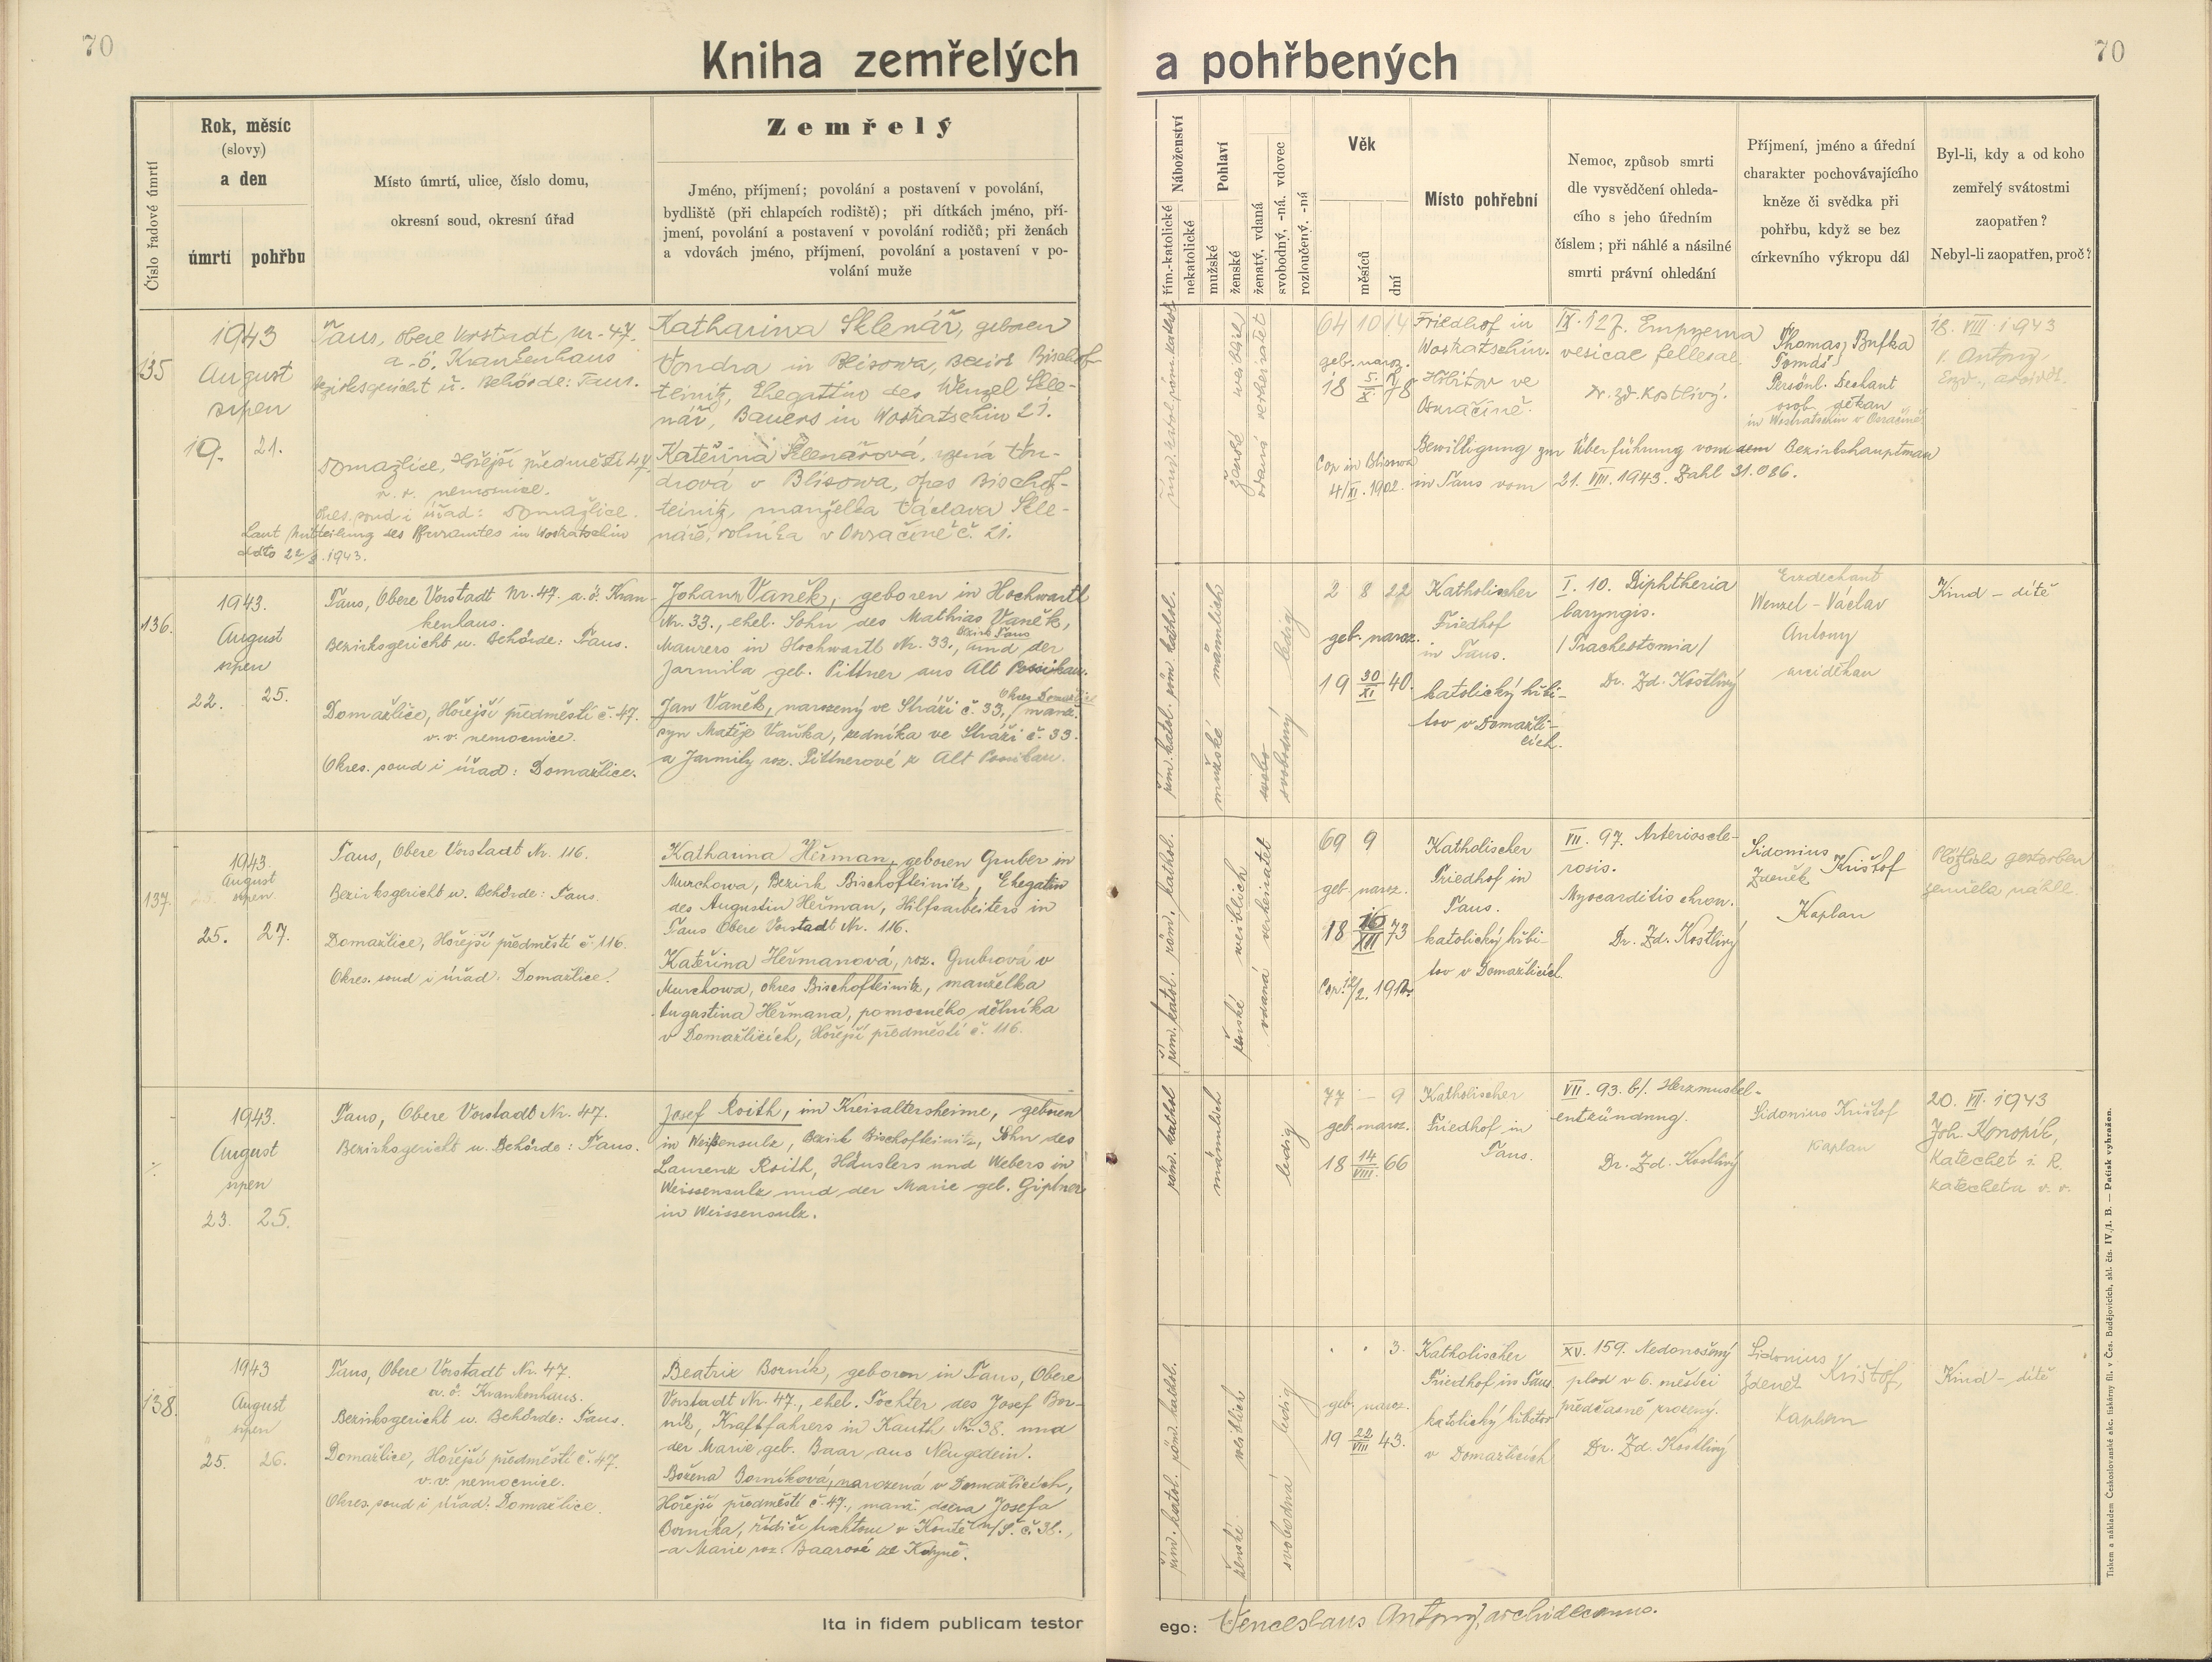 70
Kniha zemřelých a pohřbených
70
Číslo řadové úmrtí
Rok, měsíc
(slovy)
a den
úmrtí
pohřbu
Místo úmrtí, ulice, číslo domu,
okresní soud, okresní úřad
Zemřelý
Jméno, příjmení; povolání a postavení v povolání,
bydliště (při chlapcích rodiště); při dítkách jméno, pří-
jmení, povolání a postavení v povolání rodičů; při ženách
a vdovách jméno, příjmení, povolání a postavení v po-
volání muže
Náboženství
řím.-katolické
nekatolické
Pohlaví
mužské
ženské
ženatý, vdaná
svobodný, -ná. vdovec
rozloučený, -ná
Věk
měsíců
dní
Místo pohřební
Nemoc, způsob smrti
dle vysvědčení ohleda-
cího s jeho úředním
číslem; při náhlé a násilné
smrti právní ohledání
Příjmení, jméno a úřední
charakter pochovávajícího
kněze či svědka při
pohřbu, když se bez
církevního výkropu dál
Byl-li, kdy a od koho
zemřelý svátostmi
zaopatřen?
Nebyl-li zaopatřen, proč?
135
1943
August
srpen
19. 21.
Taus, obere Vorstadt, Nr. 47.
a. ö. Krankenhaus
Bezirksgericht u. Behörde: Taus.
Domažlice, Hořejší předměstí 47
v. v. nemocnice.
Okres. soud i úřad: Domažlice.
Laut Mitteilung des Pfarramtes in Wostratschin
1943.
Katharina Sklenář, geboren
Vondra in Blisowa, Bezirk Bischof-
teinitz, Ehegattin des Wenzel Skle-
nář, Bauers in Wostratschin 21.
Kateřina Sklenářová, rozená Von-
drová v Blisowa, okres Bischof-
teinitz, manželka Václava Skle-
náře, rolníka v Osvračíně č. 21.
řím. katol. röm. kathol.
ženské weiblich
vdaná verheiratet
64 10 14
geb. naroz.
18 5./X. 78
Cop in Blisowa
4/XI. 1902.
Friedhof in
Wostratschin.
Hřbitov ve
Osvračíně.
IX. 127. Empyema
vesicae felleae
Dr. Zd. Kostlivý.
Thomas Bufka
Tomáš
Personl. Dechant
osob. děkan
in Wostratschin v Osvračíně
18. VIII. 1943
Antony
Bewilligung zur Überführung von dem Bezirkshauptman
in Taus vom 21. VIII. 1943. Zahl 31.086.
136.
1943.
August
srpen
22. 25.
Taus, Obere Vorstadt Nr. 47. a. ö. Kran-
kenhaus.
Bezirksgericht u. Behörde: Taus.
Domažlice, Hořejší předměstí č. 47.
v. v. nemocnice.
Okres. soud i úřad: Domažlice.
Johann Vaněk, geboren in Hochwartl
Nr. 33., ehel. Sohn des Mathias Vaněk,
Bezirk Taus
Maurers in Hochwartl Nr. 33., und der
Jarmila geb. Pittner aus Alt
Okres Domažlice
Jan Vaněk, narozený ve Stráži č. 33, manž.
syn Matěje Vaňka, zedníka ve Stráži č. 33.
a Jarmily roz. Pittnerové z Alt
řím. katol. röm. kathol.
mužské männlich
svobodný ledig
2 8 22
geb. naroz.
19 30/XI 40.
Katholischer
Friedhof
in Taus.
katolický hřbi-
tov v Domažli-
cích.
I. 10. Diphtheria
laryngis.
/Tracheotomia/
Dr. Zd. Kostlivý
Erzdechant
Wenzel - Václav
Antony
arciděkan
Kind - dítě
137.
1943.
August
srpen
25. 27.
Taus, Obere Vorstadt Nr. 116.
Bezirksgericht u. Behörde: Taus.
Domažlice, Hořejší předměstí č. 116.
Okres. soud i úřad. Domažlice.
Katharina Heřman, geboren Gruber in
Murchowa, Bezirk Bischofteinitz, Ehegattin
des Augustin Heřman, Hilfsarbeiters in
Taus Obere Vorstadt Nr. 116.
Kateřina Heřmanová, roz. Grubrová v
Murchowa, okres Bischofteinitz, manželka
Augustina Heřmana, pomocného dělníka
v Domažlicích, Hořejší předměstí č. 116.
řím. katol. röm. kathol.
ženské weiblich
vdaná verheiratet
69 9
geb. naroz.
18 16/XII 73
Katholischer
Friedhof in
Taus.
katolický hřbi-
tov v Domažlicích.
VII. 97. Arterioscle-
rosis.
Myocarditis chron.
Dr. Zd. Kostlivý
Sidonius
Zdeněk Krištof
Kaplan
Plötzlich gestorben
zemřela náhle.
1943.
August
srpen
23. 25.
Taus, Obere Vorstadt Nr. 47.
Bezirksgericht u. Behörde: Taus.
Josef Roith, im Kreisaltersheime, geboren
in Weißensulz, Bezirk Bischofteinitz, Sohn des
Laurenz Roith, Häuslers und Webers in
Weissensulz und der Marie geb. Giptner
in Weissensulz.
röm. kathol
männlich
ledig
77 - 9
geb. naroz.
18 14/VIII. 66
Katholischer
Friedhof in
Taus.
VII. 93. b/. Herzmuskel-
entzündung.
Dr. Zd. Kostlivý
Sidonius Krištof
Kaplan
20. VII. 1943
Joh. Konopík,
Katechet i. R.
katecheta v. v.
138.
1943
August
srpen
25. 26.
Taus, Obere Vorstadt Nr. 47.
a. ö. Krankenhaus.
Bezirksgericht u. Behörde: Taus.
Domažlice, Hořejší předměstí č. 47.
v. v. nemocnice.
Okres. soud i úřad: Domažlice.
Beatrix Borník, geboren in Taus, Obere
Vorstadt Nr. 47., ehel. Tochter des Josef Bor-
ník, Kraftfahrers in Kauth Nr. 38. und
der Marie geb. Baar aus Neugedein.
Božena Borníková, narozená v Domažlicích,
Hořejší předměstí č. 47., manž. dcera Josefa
Borníka, řidiče traktoru v Koutě n/Š. č. 38.,
a Marie roz. Baarové ze Kdyně.
řím. katol. röm. kathol.
ženské weiblich
svobodná ledig
. . 3.
geb. naroz.
19 22/VIII 43.
Katholischer
Friedhof in Taus
katolický hřbitov
v Domažlicích
XV. 159. Nedonošený
plod v 6. měsíci
předčasně zrozený.
Dr. Zd. Kostlivý
Sidonius
Zdeněk Krištof,
Kaplan
Kind - dítě
Ita in fidem publicam testor ego: Venceslaus Antony, archidecanus.
Tiskem a nákladem Českoslovanské akc. tiskárny fil. v Čes. Budějovicích, skl. čís. IV./1. B. — Patisk vyhražen.